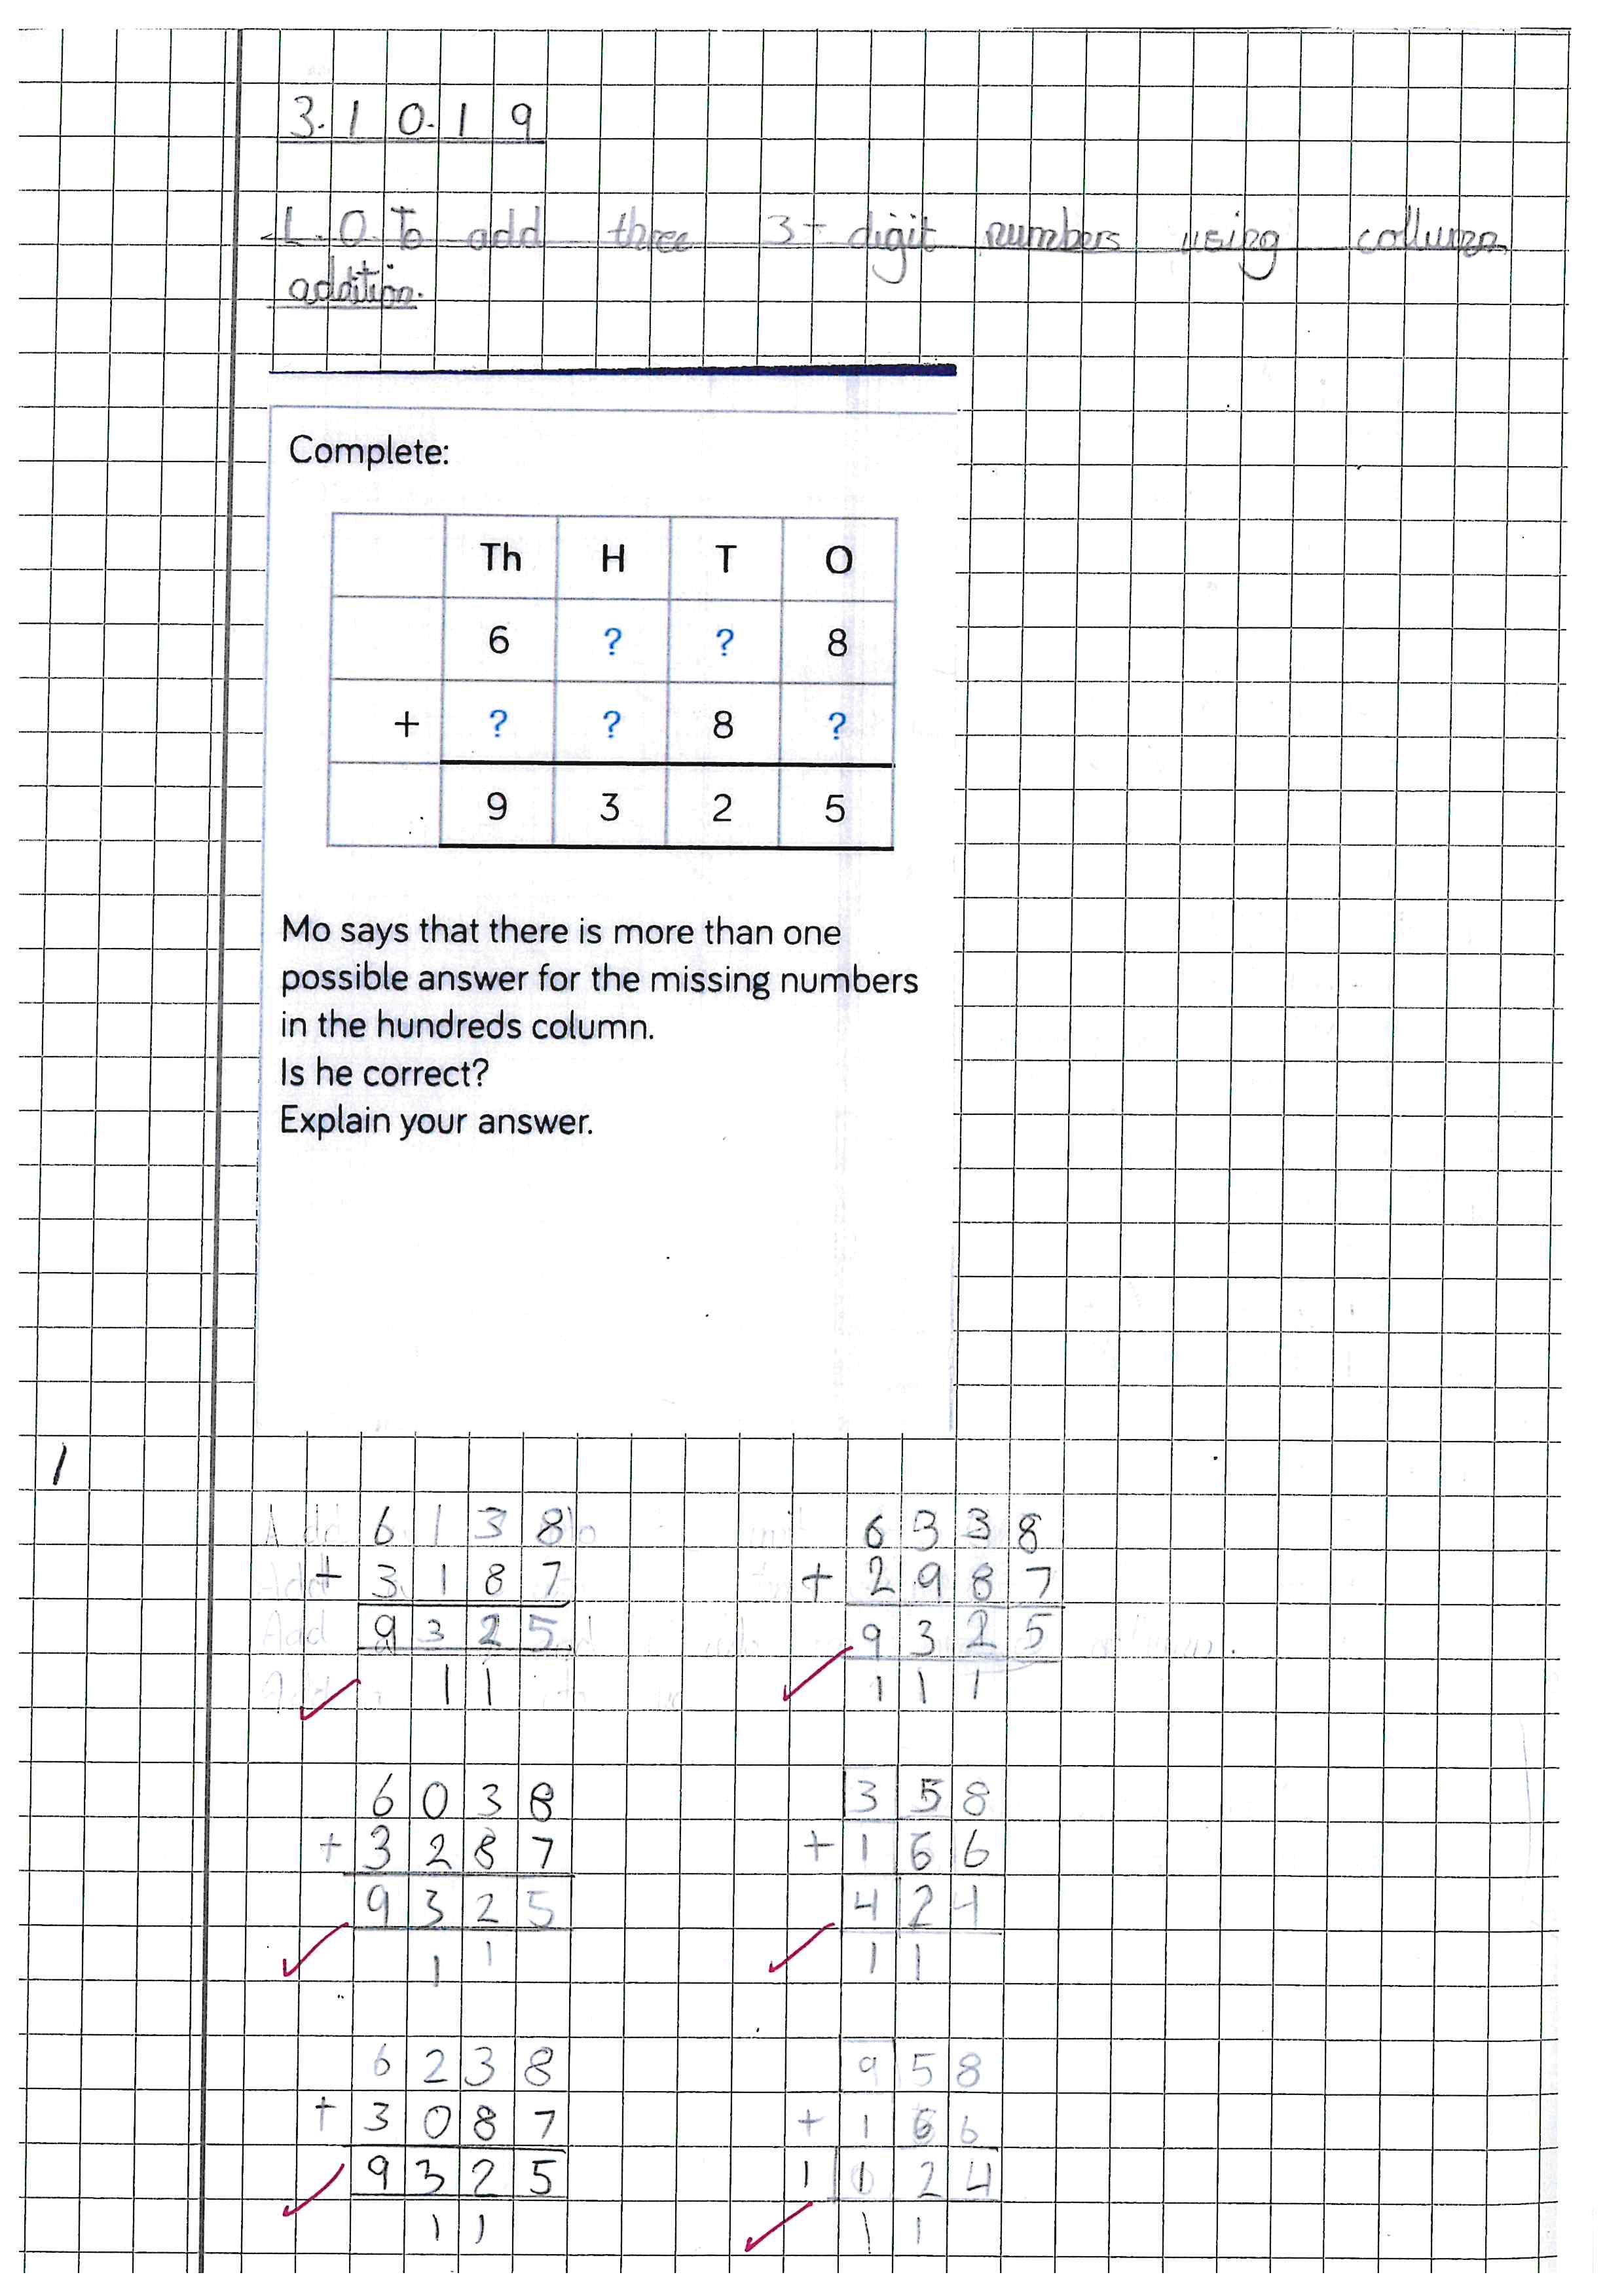 3.10.19
L.O. To add three 3-digit numbers using collumn
addition.
Complete:
Th H T O
6 ? ? 8
+ ? ? 8 ?
9 3 2 5
Mo says that there is more than one
possible answer for the missing numbers
in the hundreds column.
Is he correct?
Explain your answer.
1
6 1 3 8
+ 3 1 8 7
9 3 2 5
1 1
6 3 3 8
+ 2 9 8 7
9 3 2 5
1 1 1
6 0 3 8
+ 3 2 8 7
9 3 2 5
1 1
3 5 8
+ 1 6 6
4 2 4
1 1
6 2 3 8
+ 3 0 8 7
9 3 2 5
1 1
9 5 8
+ 1 6 6
1 1 2 4
1 1